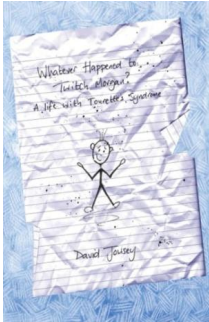 Whatever Happened to
Twitch Morgan?
A life with Tourettes Syndrome
David Jousey